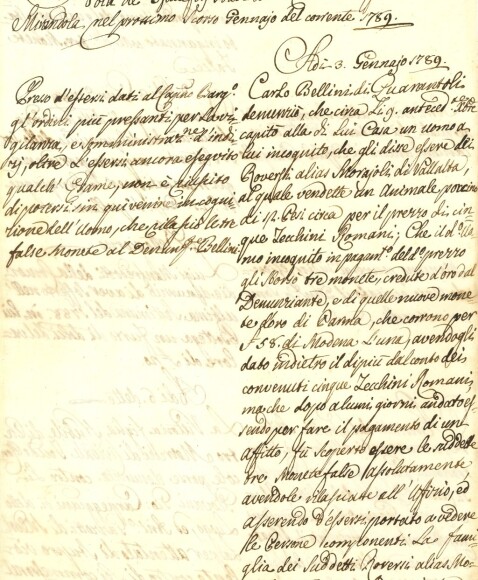 Mirandola nel prossimo scorso Gennajo del corrente 1789.
Adi 3. Gennajo 1789.
Carlo Bellini di Quarantoli
denunziò, che circa li 9. anteced.
capitò alla di lui Casa un uomo a
lui incognito, che gli disse essere dei
Roversi alias Morajoli di Vallalta,
al quale vendette un Animale porcino
di 12. Pesi circa per il prezzo di cin-
que Zecchini Romani; Che il d.º Uo-
mo incognito in pagam.º del d.º prezzo
gli sborsò tre monete, credute d'oro dal
Denunziante, e di quelle nuove mone
te d'oro di Parma, che corrono per
£ 58. di Modena l'una, avendogli
dato indietro il di più dal conto dei
convenuti cinque Zecchini Romani;
ma che dopo alcuni giorni andato es-
sendo per fare il pagamento di un
affitto, fù scoperto essere le suddette
tre Monete false assolutamente
avendole rilasciate all'Uffizio, ed
asserendo d'essersi portato a vedere
le Persone componenti la fami-
glia dei suddetti Roversi alias Mo-
Preso d'essersi dati al
gl'ordini più pressanti per la
vigilanza, e somministraz.ne d'indi-
zj, oltre l'essersi ancora eseguito
qualch' Esame, non è riuscito
di potersi sin qui venire in cogni
zione dell'Uomo, che rilasciò le tre
false Monete al Denun.te Bellini